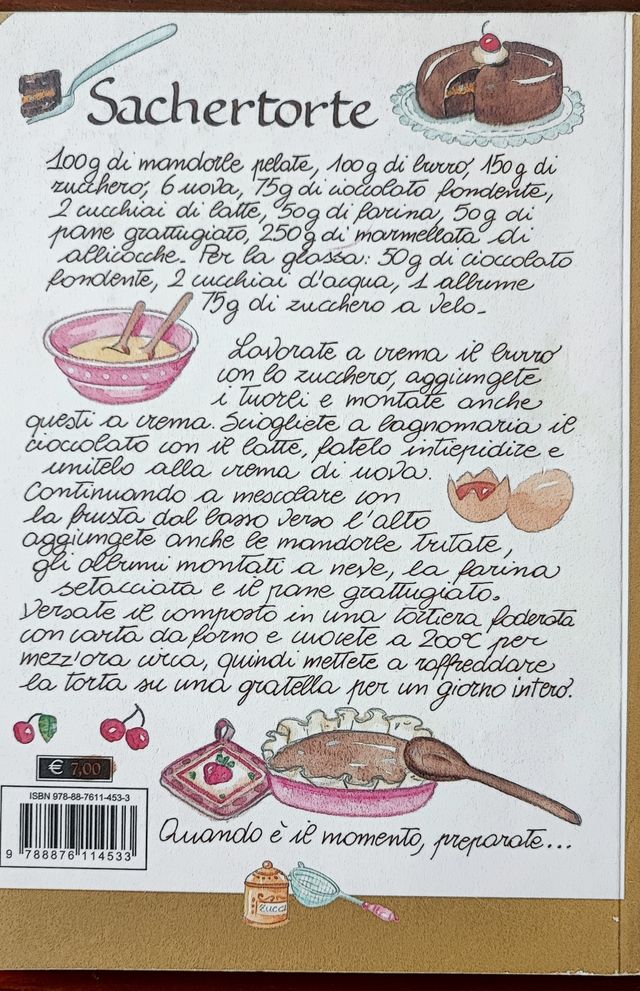 Sachertorte
100g di mandorle pelate, 100g di burro, 150g di
zucchero, 6 uova, 75g di cioccolato fondente,
2 cucchiai di latte, 50g di farina, 50g di
pane grattugiato, 250g di marmellata di
allicocche. Per la glassa: 50g di cioccolato
fondente, 2 cucchiai d'acqua, 1 albume
75g di zucchero a velo.
Lavorate a crema il burro
con lo zucchero, aggiungete
i tuorli e montate anche
questi a crema. Sciogliete a bagnomaria il
cioccolato con il latte, fatelo intiepidire e
unitelo alla crema di uova.
Continuando a mescolare con
la frusta dal basso verso l'alto
aggiungete anche le mandorle tritate,
gli albumi montati a neve, la farina
setacciata e il pane grattugiato.
Versate il composto in una tortiera foderata
con carta da forno e cuocete a 200°C per
mezz'ora circa, quindi mettete a raffreddare
la torta su una gratella per un giorno intero.
€ 7,00
ISBN 978-88-7611-453-3
9 788876 114533
Quando è il momento, preparate...
ZUCC